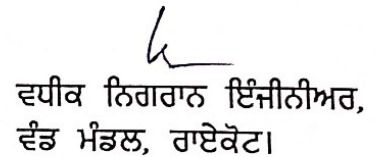 ਵਧੀਕ ਨਿਗਰਾਨ ਇੰਜੀਨੀਅਰ,
ਵੰਡ ਮੰਡਲ, ਰਾਏਕੋਟ।